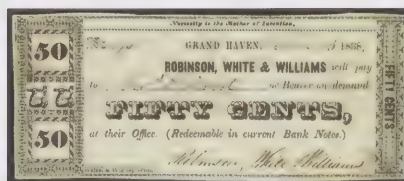 Necessity is the Mother of Invention.
50
GRAND HAVEN, 1838.
ROBINSON, WHITE & WILLIAMS will pay
to or Bearer on demand
FIFTY CENTS,
50
at their Office. (Redeemable in current Bank Notes.)
Robinson, White & Williams
FIFTY CENTS